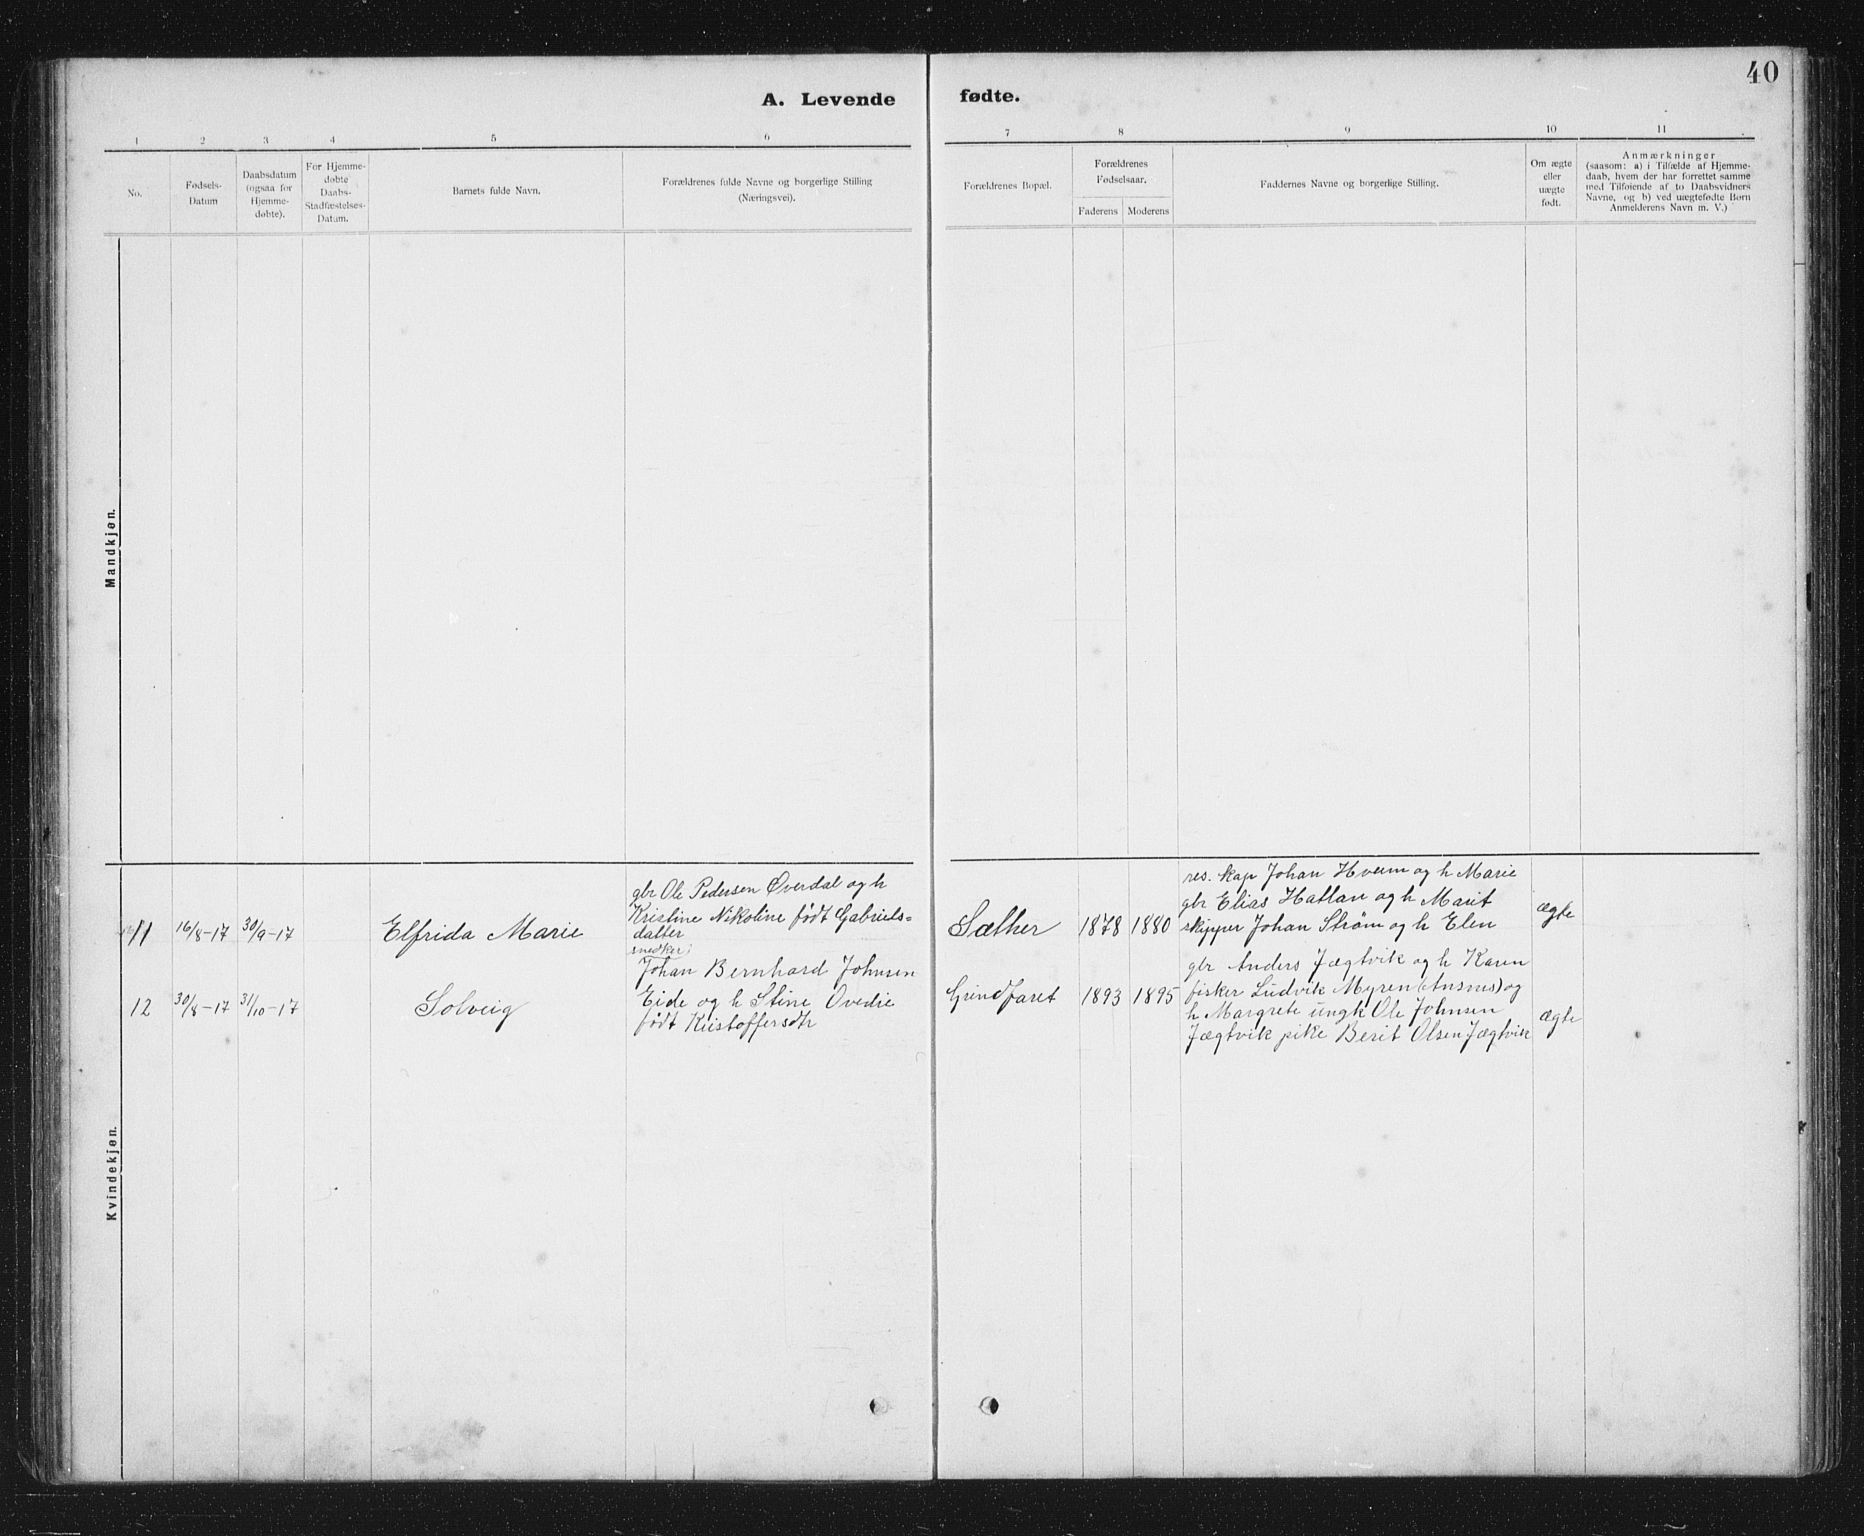 40
A. Levende fødte.
1 2 3 4 5 6 7 8 9 10 11
No.
Fødsels-
Datum
Daabsdatum
(ogsaa for
Hjemme-
døbte).
For Hjemme-
døbte
Daabs-
Stadfæstelses-
Datum.
Barnets fulde Navn.
Forældrenes fulde Navne og borgerlige Stilling
(Næringsvei).
Forældrenes Bopæl.
Forældrenes
Fødselsaar.
Faderens Moderens
Faddernes Navne og borgerlige Stilling.
Om ægte
eller
uægte
født.
Anmærkninger
(saasom: a) i Tilfælde af Hjemme-
daab, hvem der har forrettet samme
med Tilføiende af to Daabsvidners
Navne, og b) ved uægtefødte Børn
Anmelderens Navn m. V.)
Mandkjøn.
Kvindekjøn.
11
16/8-17
30/9-17
Elfrida Marie
gbr Ole Pedersen Øverdal og h
Kristine Nikoline født Gabriels=
datter
Sæther
1878
1880
res. kap Johan Hveem og h Marie
gbr Elias Hatlan og h Marit
skipper Johan Strøm og h Elen
ægte
12
30/8-17
31/10-17
Solveig
snedker
Johan Bernhard Johnsen
Eide og h Stine Ovedie
født Kristoffersdtr
Grindfaret
1893
1895
gbr Anders Jægtvik og h Karen
fisker Ludvik Myren (Ansnes) og
h Margrete ungk Ole Johnsen
Jægtvik pike Berit Olsen Jægtvik
ægte